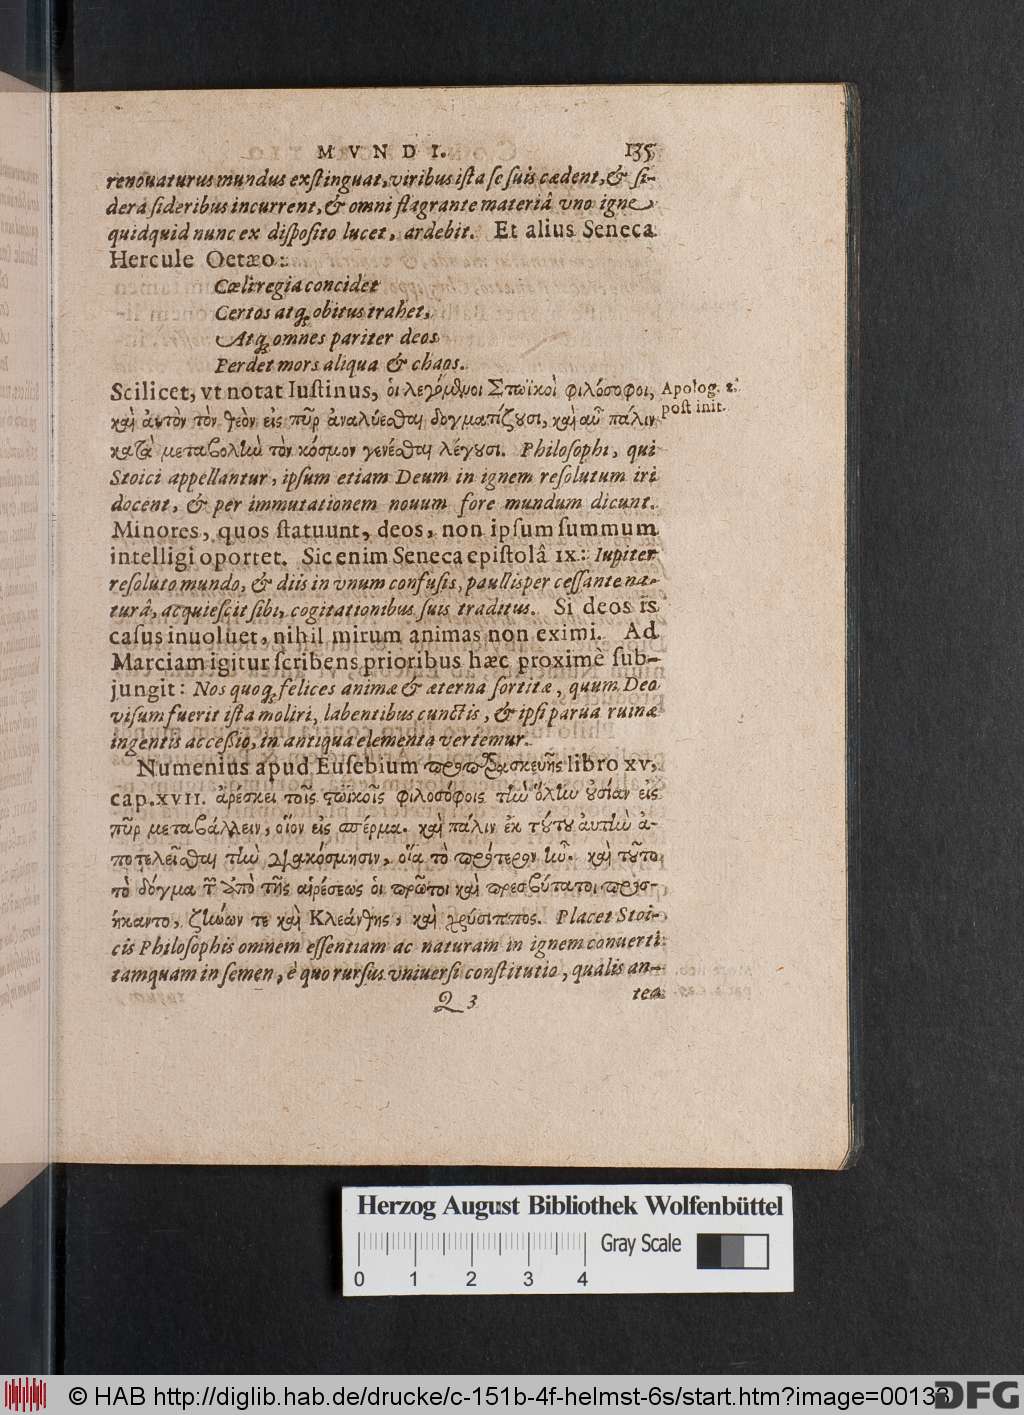 MVNDI. 135
renouaturus mundus exstinguat, viribus ista se suis cædent, & si-
dera sideribus incurrent, & omni flagrante materiâ vno igne
quidquid nunc ex disposito lucet, ardebit. Et alius Seneca
Hercule Oetæo:
Cæli regia concidet
Certos atq; obitus trahet,
Atq; omnes pariter deos
Perdet mors aliqua & chaos.
Scilicet, vt notat Iustinus, ὁι λεγόμϑμοι Στωϊκοὶ φιλόσοφοι, Apolog. 2.
post init.
καὶ ἀυτὸν τὸν θεὸν εἰς πῦρ ἀναλύεσθαι δογματίζουσι, καὶ αὖ πάλιν
κατὰ μεταβολὴν τὸν κόσμον γενέσθαι λέγουσι. Philosophi, qui
Stoici appellantur, ipsum etiam Deum in ignem resolutum iri
docent, & per immutationem nouum fore mundum dicunt.
Minores, quos statuunt, deos, non ipsum summum
intelligi oportet. Sic enim Seneca epistolâ IX: Iupiter
resoluto mundo, & diis in vnum confusis, paullisper cessante na-
turâ, acquiescit sibi, cogitationibus suis traditus. Si deos is
casus inuoluet, nihil mirum animas non eximi. Ad
Marciam igitur scribens prioribus hæc proximè sub-
jungit: Nos quoq; felices animæ & æterna sortitæ, quum Deo
visum fuerit ista moliri, labentibus cunctis, & ipsi parua ruinæ
ingentis accessio, in antiqua elementa vertemur.
Numenius apud Eusebium προπαρασκευῆς libro XV,
cap. XVII. ἀρέσκει τοῖς στωϊκοῖς φιλοσόφοις τὴν ὅλην οὐσίαν εἰς
πῦρ μεταβάλλειν, οἷον εἰς σπέρμα. καὶ πάλιν ἐκ τούτου ἀυτὴν ἀ-
ποτελεῖσθαι τὴν διακόσμησιν, οἵα τὸ πρότερον ἦν. καὶ τοῦτο
τὸ δόγμα τῶν ἀπὸ τῆς αἱρέσεως ὁι πρῶτοι καὶ πρεσβύτατοι προσ-
ήκαντο, ζήνων τε καὶ Κλεάνθης, καὶ χρύσιππος. Placet Stoi-
cis Philosophis omnem essentiam ac naturam in ignem conuerti
tamquam in semen, è quo rursus vniuersi constitutio, qualis an-
Q 3 tea
Herzog August Bibliothek Wolfenbüttel
Gray Scale
0 1 2 3 4
© HAB http://diglib.hab.de/drucke/c-151b-4f-helmst-6s/start.htm?image=00133
DFG